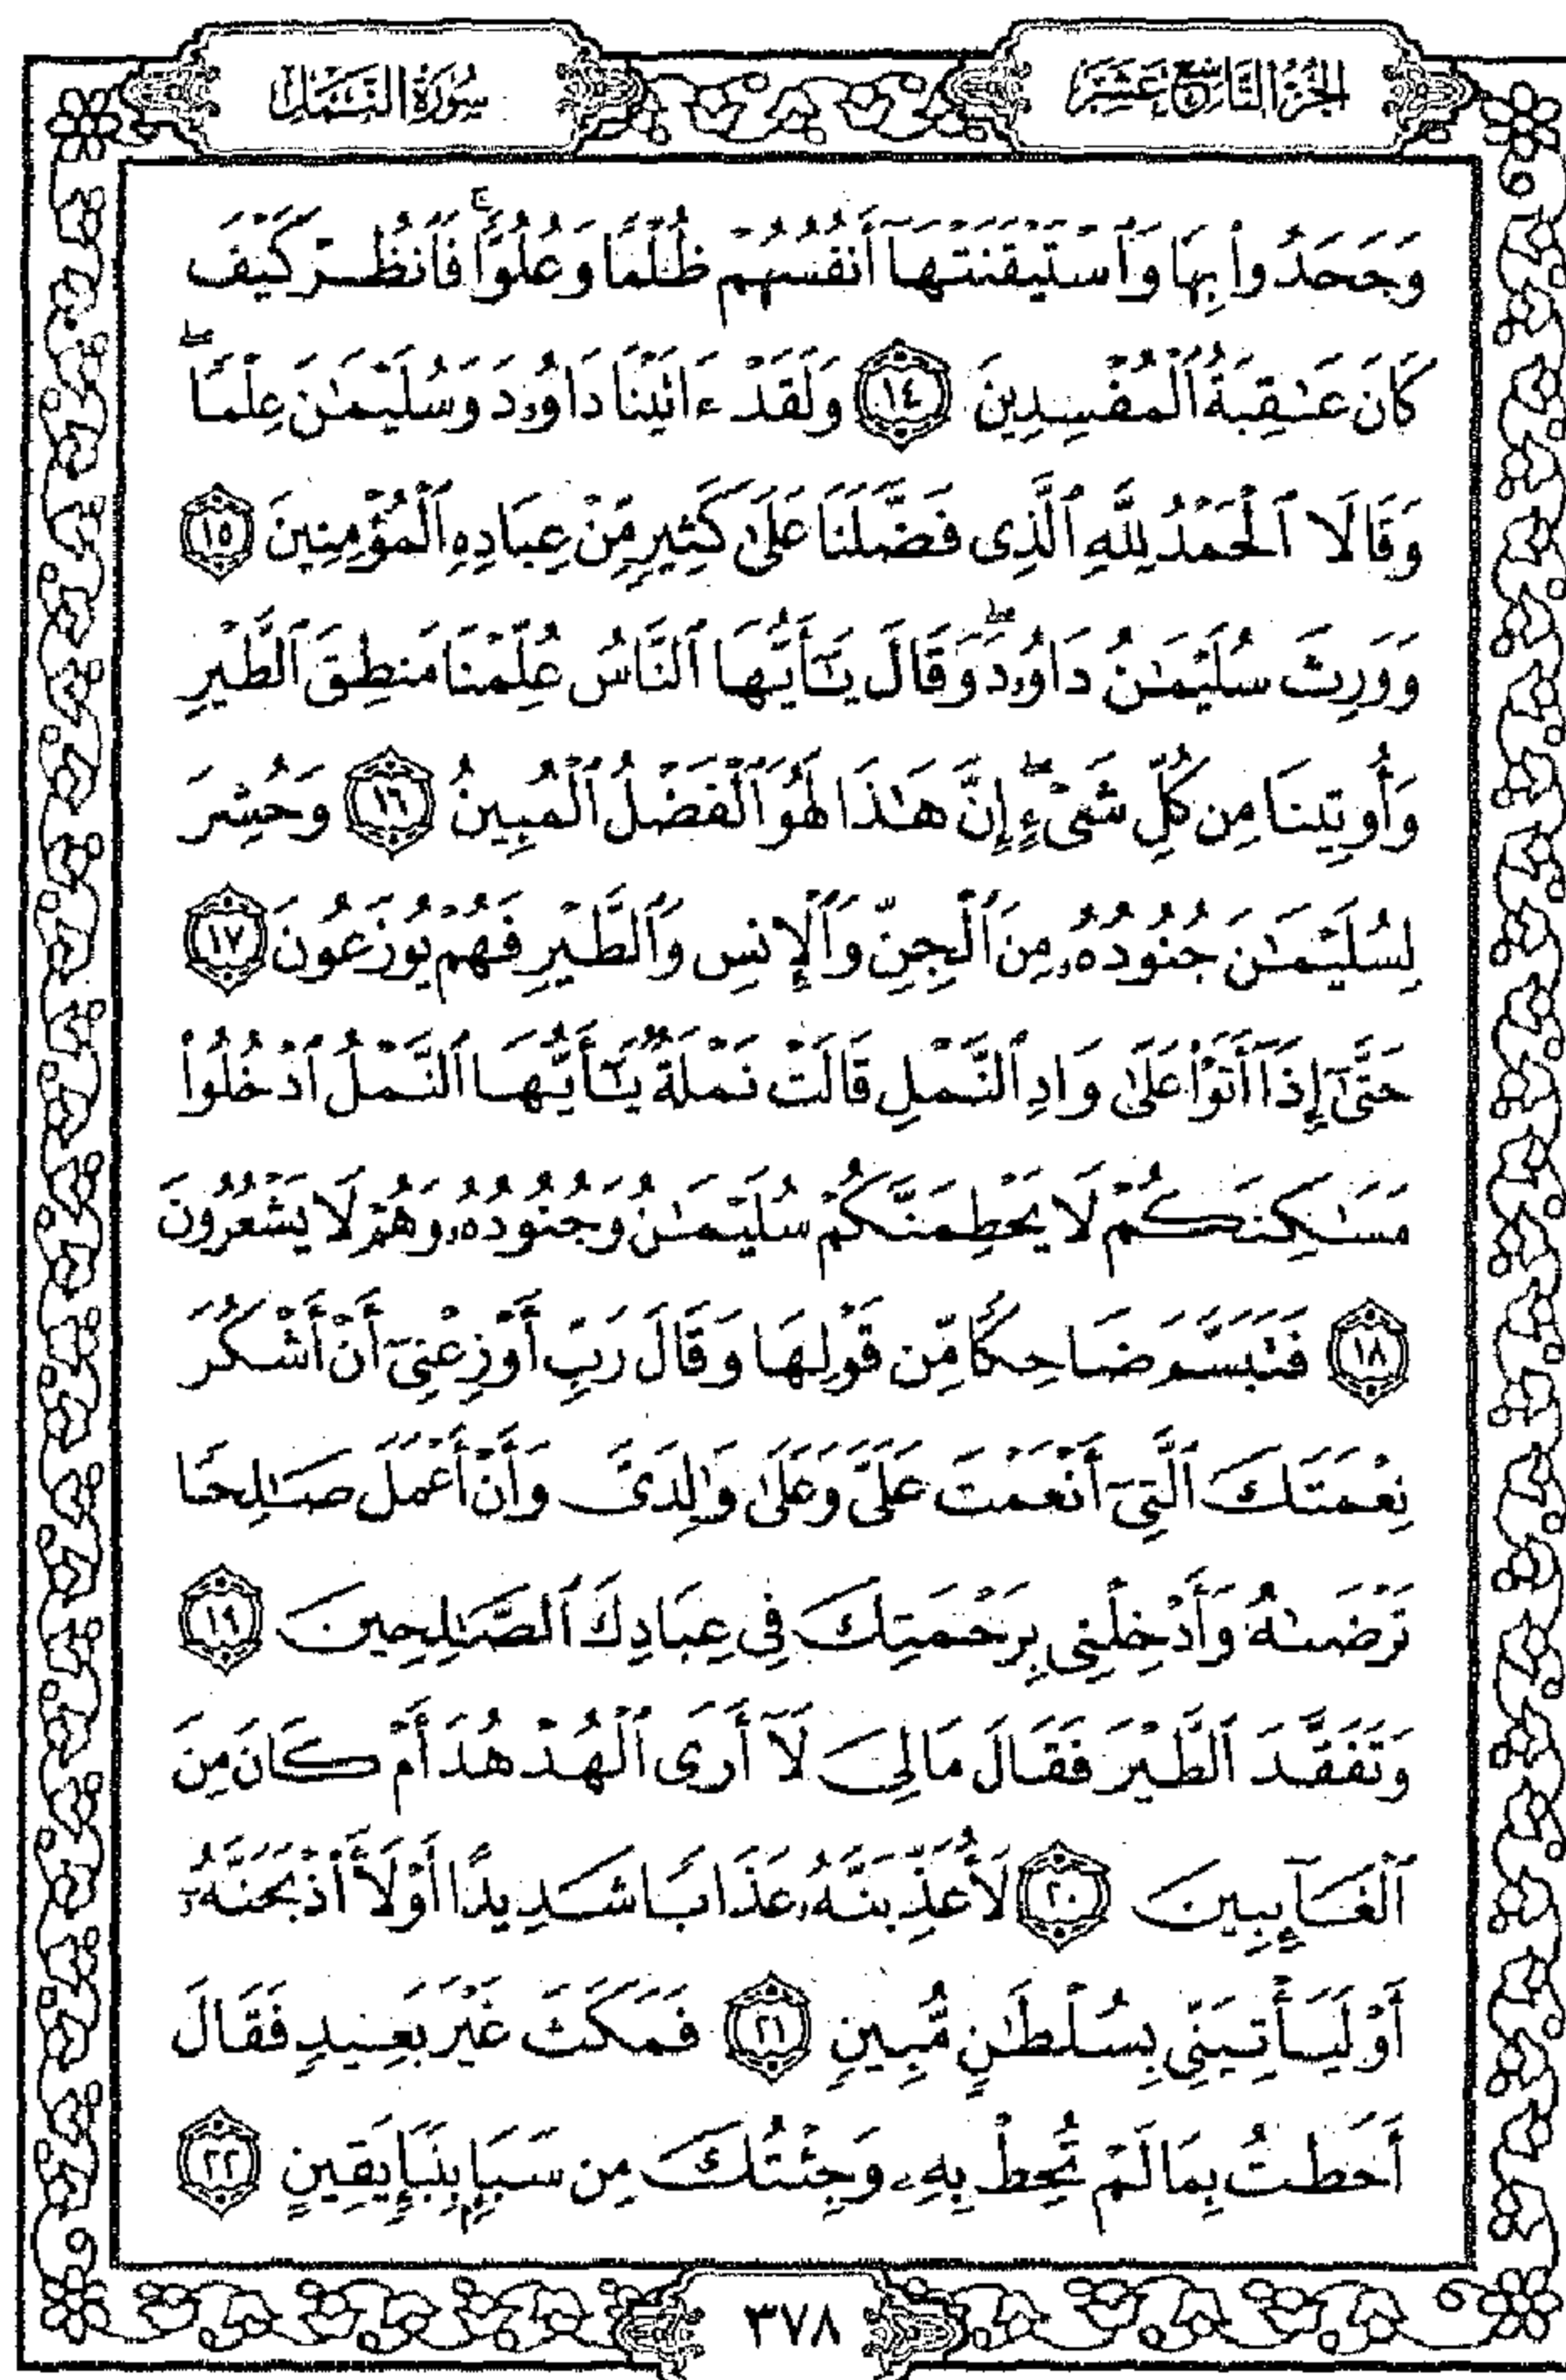 الجزء التاسع عشر
سورة النمل
وَجَحَدُوا۟ بِهَا وَٱسْتَيْقَنَتْهَآ أَنفُسُهُمْ ظُلْمًا وَعُلُوًّا ۚ فَٱنظُرْ كَيْفَ
كَانَ عَـٰقِبَةُ ٱلْمُفْسِدِينَ ١٤ وَلَقَدْ ءَاتَيْنَا دَاوُۥدَ وَسُلَيْمَـٰنَ عِلْمًا ۖ
وَقَالَا ٱلْحَمْدُ لِلَّهِ ٱلَّذِى فَضَّلَنَا عَلَىٰ كَثِيرٍ مِّنْ عِبَادِهِ ٱلْمُؤْمِنِينَ ١٥
وَوَرِثَ سُلَيْمَـٰنُ دَاوُۥدَ ۖ وَقَالَ يَـٰٓأَيُّهَا ٱلنَّاسُ عُلِّمْنَا مَنطِقَ ٱلطَّيْرِ
وَأُوتِينَا مِن كُلِّ شَىْءٍ ۖ إِنَّ هَـٰذَا لَهُوَ ٱلْفَضْلُ ٱلْمُبِينُ ١٦ وَحُشِرَ
لِسُلَيْمَـٰنَ جُنُودُهُۥ مِنَ ٱلْجِنِّ وَٱلْإِنسِ وَٱلطَّيْرِ فَهُمْ يُوزَعُونَ ١٧
حَتَّىٰٓ إِذَآ أَتَوْا۟ عَلَىٰ وَادِ ٱلنَّمْلِ قَالَتْ نَمْلَةٌ يَـٰٓأَيُّهَا ٱلنَّمْلُ ٱدْخُلُوا۟
مَسَـٰكِنَكُمْ لَا يَحْطِمَنَّكُمْ سُلَيْمَـٰنُ وَجُنُودُهُۥ وَهُمْ لَا يَشْعُرُونَ
١٨ فَتَبَسَّمَ ضَاحِكًا مِّن قَوْلِهَا وَقَالَ رَبِّ أَوْزِعْنِىٓ أَنْ أَشْكُرَ
نِعْمَتَكَ ٱلَّتِىٓ أَنْعَمْتَ عَلَىَّ وَعَلَىٰ وَٰلِدَىَّ وَأَنْ أَعْمَلَ صَـٰلِحًا
تَرْضَىٰهُ وَأَدْخِلْنِى بِرَحْمَتِكَ فِى عِبَادِكَ ٱلصَّـٰلِحِينَ ١٩
وَتَفَقَّدَ ٱلطَّيْرَ فَقَالَ مَا لِىَ لَآ أَرَى ٱلْهُدْهُدَ أَمْ كَانَ مِنَ
ٱلْغَآئِبِينَ ٢٠ لَأُعَذِّبَنَّهُۥ عَذَابًا شَدِيدًا أَوْ لَأَا۟ذْبَحَنَّهُۥٓ
أَوْ لَيَأْتِيَنِّى بِسُلْطَـٰنٍ مُّبِينٍ ٢١ فَمَكَثَ غَيْرَ بَعِيدٍ فَقَالَ
أَحَطتُ بِمَا لَمْ تُحِطْ بِهِۦ وَجِئْتُكَ مِن سَبَإٍۭ بِنَبَإٍ يَقِينٍ ٢٢
٣٧٨